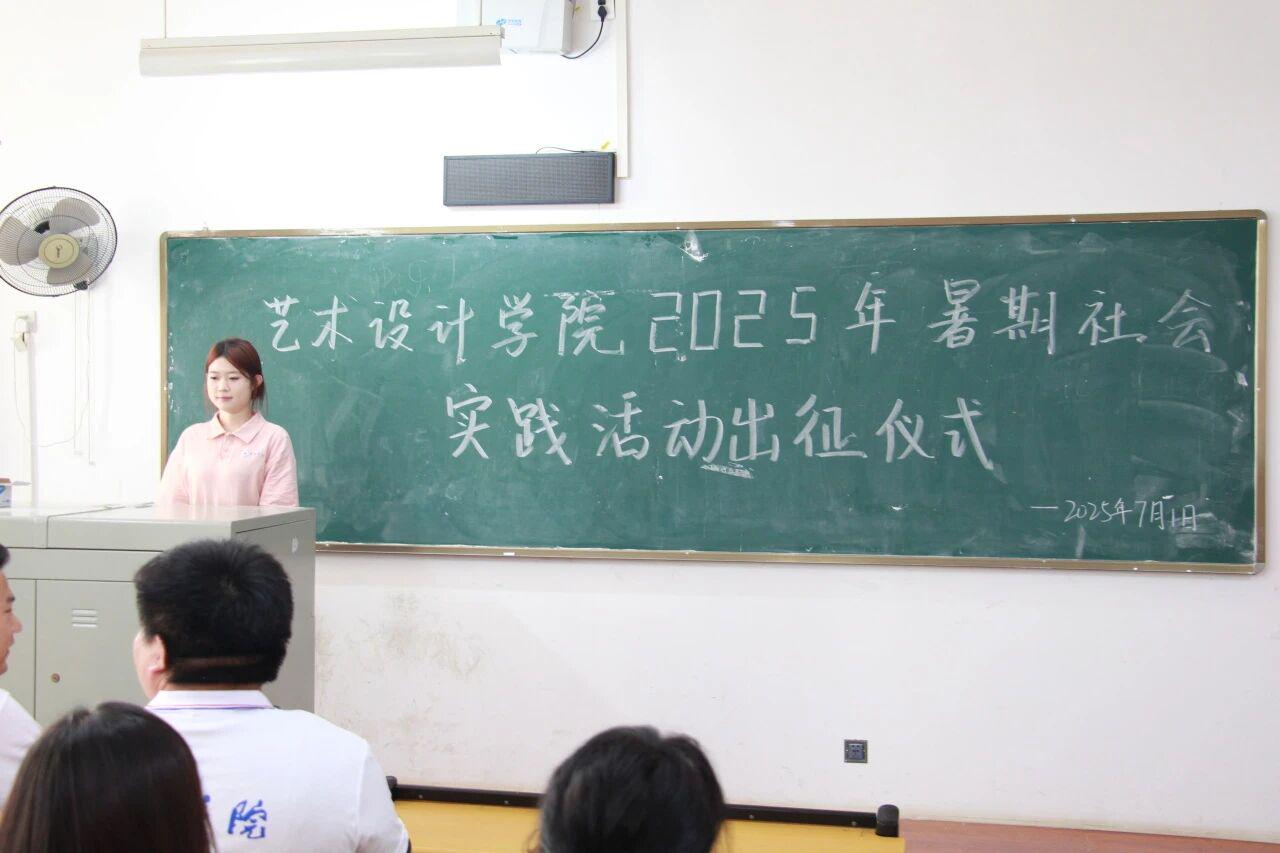 艺术设计学院2025年暑期社会
实践活动出征仪式
—2025年7月1日
院